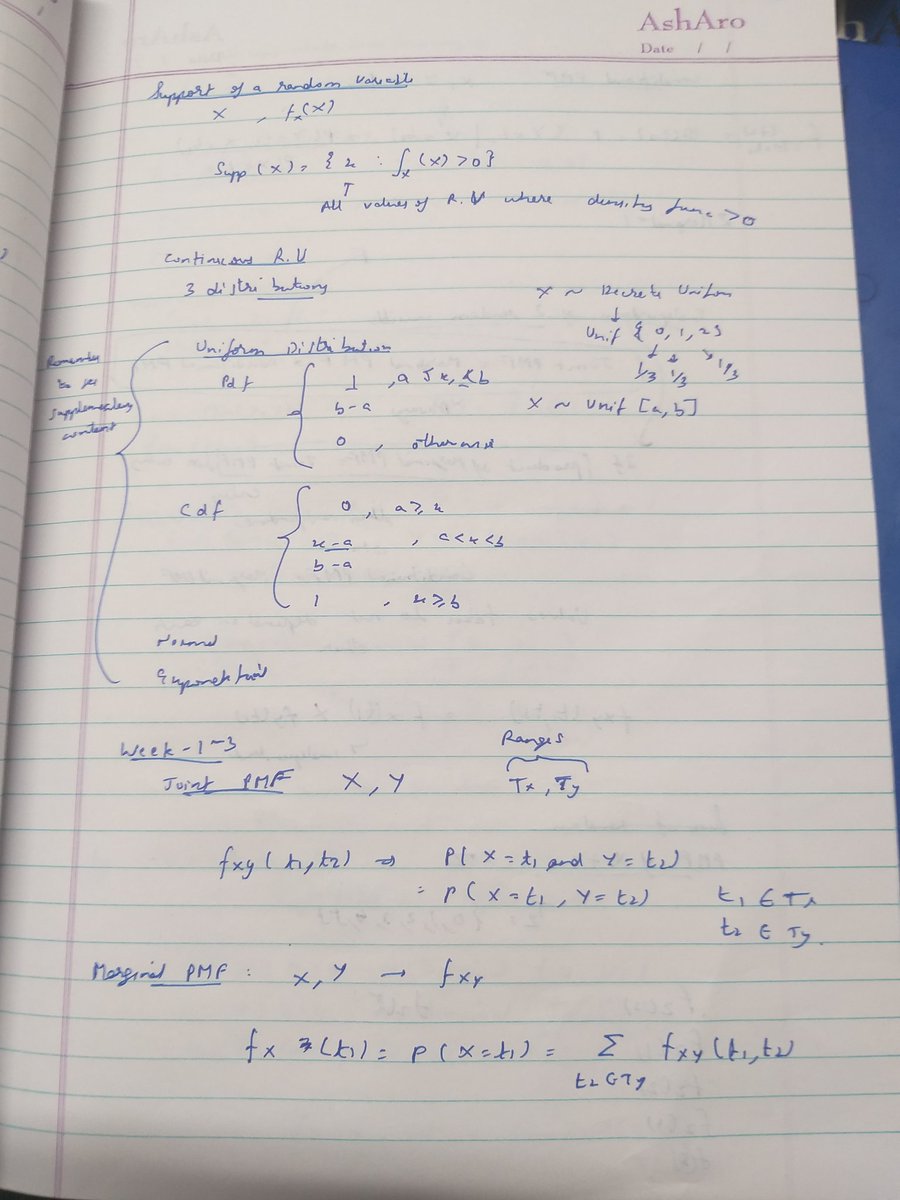 AshAro
Date / /
Support of a random variable
X , fx(X)
Supp (X) = { x : ∫x (x) > 0 }
↑
All values of R.V where density func > 0
Continuous R.V
3 distributions
X ~ Discrete Uniform
↓
Unif { 0, 1, 2 }
↓ ↓ ↘
1/3 1/3 1/3
X ~ Unif [a, b]
Remember
to see
supplementary
content
Uniform Distribution
Pdf
1 , a ≤ x, ≤ b
b-a
0 , otherwise
Cdf
0 , a ≥ x
x-a , a < x < b
b-a
1 , x ≥ b
Normal
Exponential
Week-1-3
Ranges
Joint PMF X, Y Tx, Ty
fxy (t1, t2) ⇒ P( X = t1 and Y = t2)
= P ( X = t1 , Y = t2) t1 ∈ Tx
t2 ∈ Ty.
Marginal PMF : X, Y → fxy
fx (t1) = P (X = t1) = Σ fxy (t1, t2)
t2 ∈ Ty